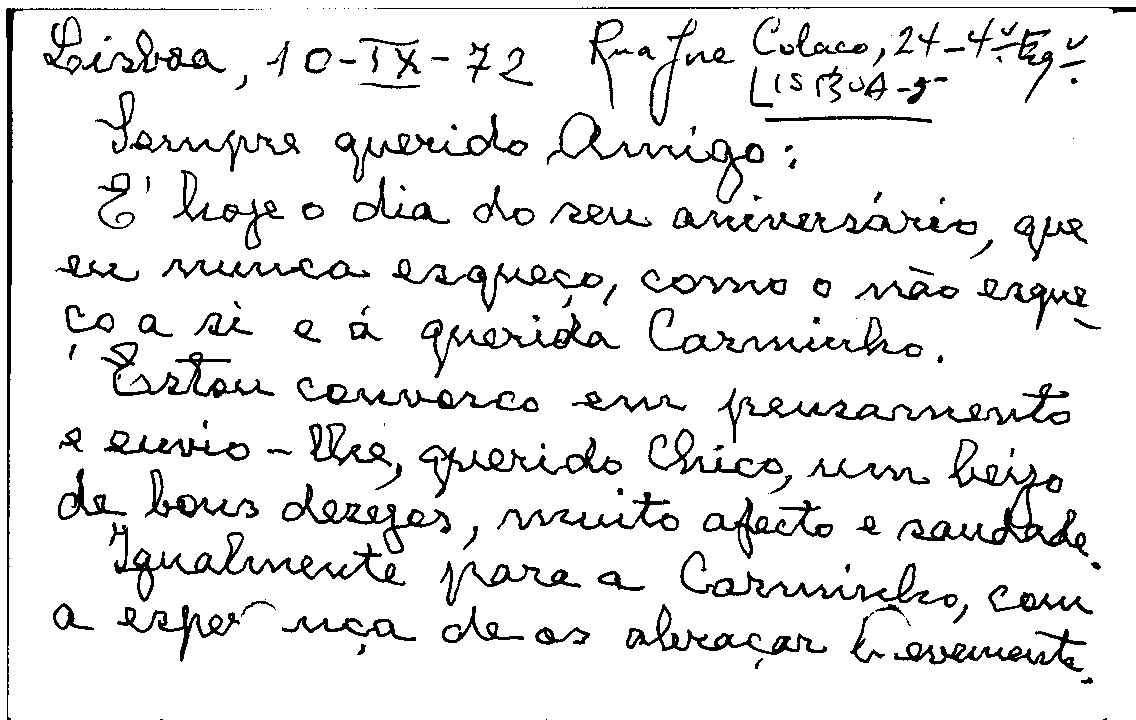 Lisboa, 10-IX-72 Rua Jne Colaço, 24-4º-Esqº.
LISBOA-5
Sempre querido Amigo:
É hoje o dia do seu aniversário, que
eu nunca esqueço, como o não esque-
ço a si e á querida Carminho.
Estou convosco em pensamento
e envio-lhe, querido Chico, um beijo
de bons dezejos, muito afecto e saudade.
Igualmente para a Carminho, com
a esperança de os abraçar brevemente.